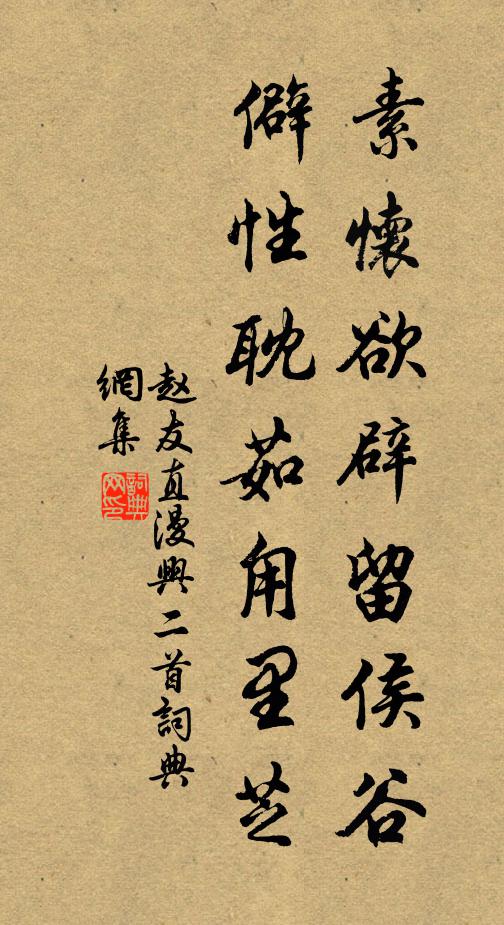 素懷欲辟留侯谷
僻性耽茹甪里芝
赵友直漫興二首詞典
網集
詞典
网印